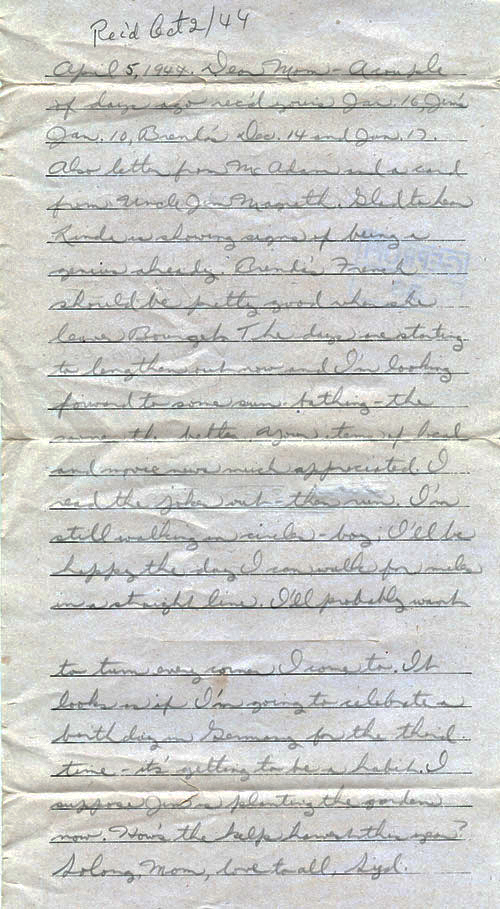 Rec'd Oct 2/44
April 5, 1944. Dear Mom - A couple
of days ago rec'd yours Jan. 16, Jim's
Jan. 10, Brenda's Dec. 14 and Jan. 17.
Also letter from Mc Adam and a card
from Uncle Jim Magrath. Glad to hear
Linda is showing signs of being a
genius already. Brenda's French
should be pretty good when she
leaves The days are starting
to lengthen out now and I'm looking
forward to some sun-bathing - the
the better. Your items of local
and movie news much appreciated. I
read the jokes out - then run. I'm
still walking in circles - boy, I'll be
happy the day I can walk for miles
in a straight line. I'll probably want
to turn every corner I come to. It
looks as if I'm going to celebrate a
birthday in Germany for the third
time - it's getting to be a habit. I
suppose Jim is planting the garden
now. How's the kelp harvest this year?
So long, Mom, love to all, Syd.